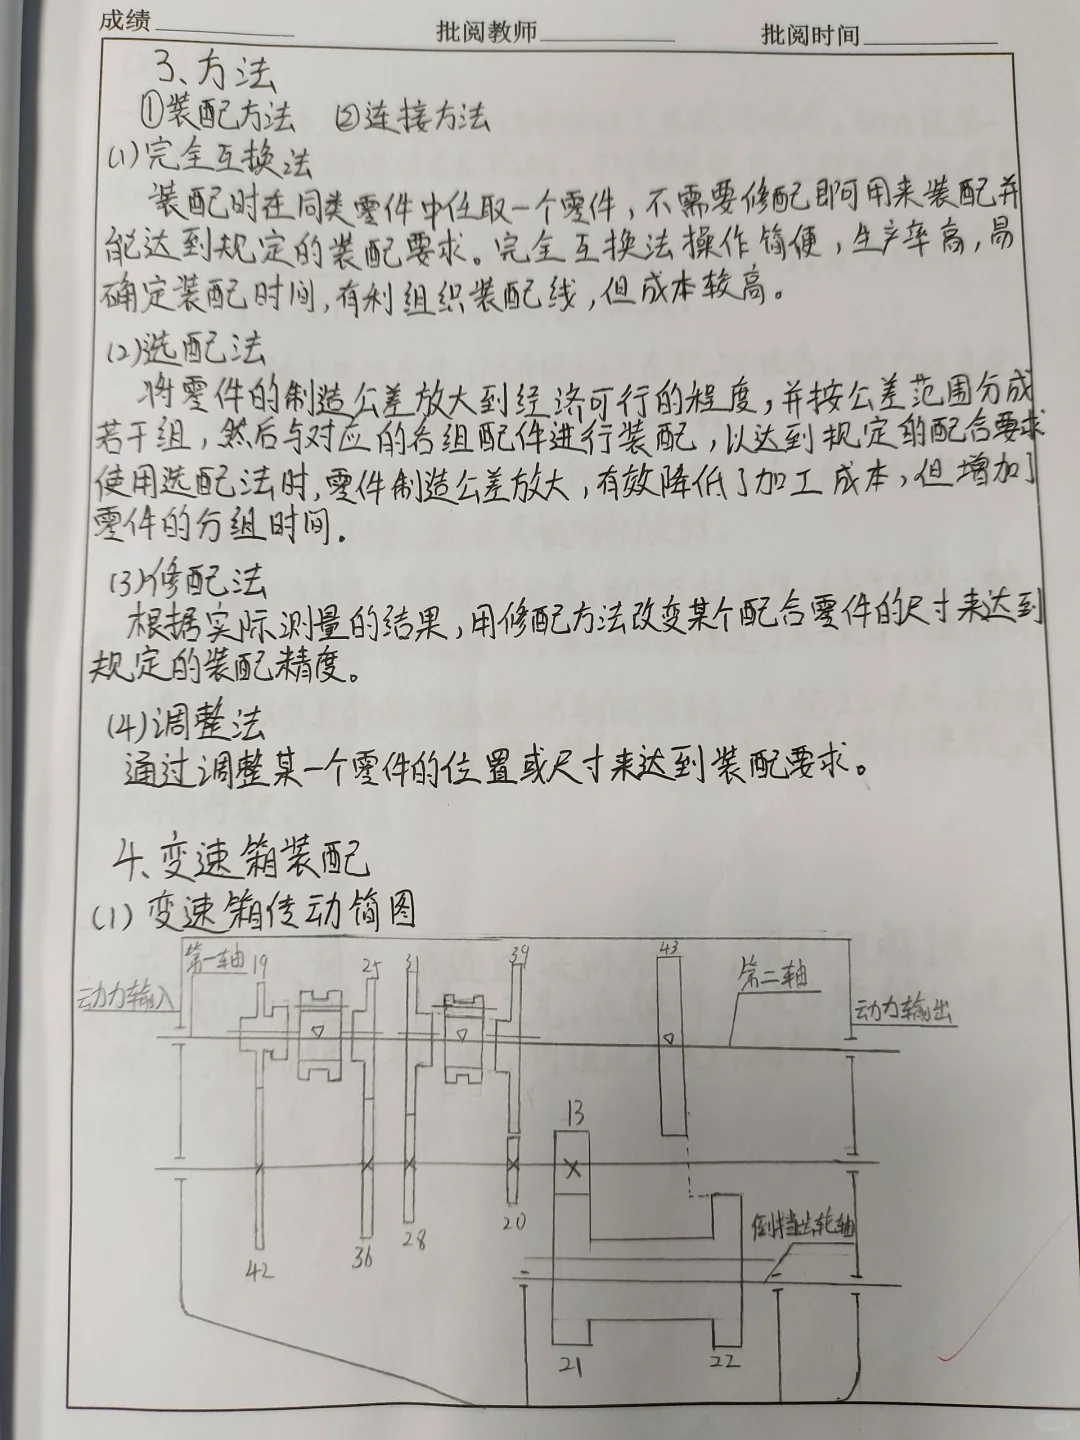 成绩 批阅教师 批阅时间
3、方法
①装配方法 ②连接方法
(1)完全互换法
装配时在同类零件中任取一个零件，不需要修配即可用来装配并
能达到规定的装配要求。完全互换法操作简便，生产率高，易
确定装配时间，有利组织装配线，但成本较高。
(2)选配法
将零件的制造公差放大到经济可行的程度，并按公差范围分成
若干组，然后与对应的各组配件进行装配，以达到规定的配合要求
使用选配法时，零件制造公差放大，有效降低了加工成本，但增加了
零件的分组时间.
(3)修配法
根据实际测量的结果，用修配方法改变某个配合零件的尺寸来达到
规定的装配精度。
(4)调整法
通过调整某一个零件的位置或尺寸来达到装配要求。
4、变速箱装配
(1) 变速箱传动简图
第一轴 19 25 31 39 43 第二轴
动力输入 动力输出
13
20
倒挡齿轮轴
42 36 28
21 22